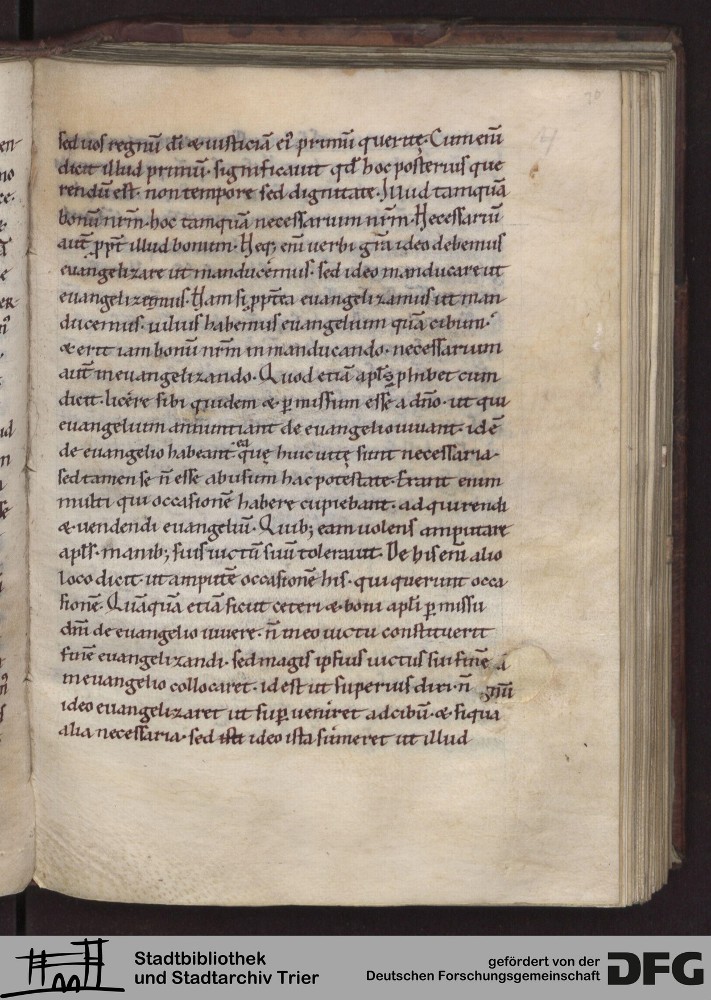 sed uos regnū dī & iusticiā ei' primū queritę. Cum eni̅
dicit illud primū. significauit qđ hoc posterius que
rendū est. non tempore sed dignitate. Illud tamquā
bonū nr̄m. hoc tamquā necessarium nr̄m. Necessariū
aut̄ ꝓpt̄ illud bonum. Neq; eni̅ uerbi gr̄a ideo debemus
euangelizare ut manducemus. sed ideo manducare ut
euangelizemus. Nam si ꝓpt̄ea euangelizamus ut man
ducemus. uilius habemus euangelium quā cibum.
& erit iam bonū nr̄m in manducando. necessarium
aut̄ in euangelizando. Quod etiā apl̄s ꝓhibet cum
dicit. licere sibi quidem & ꝑmissum esse a dn̄o. ut qui
euangelium annuntiant de euangelio uiuant. id ē
de euangelio habeant ea quę huic uitę sunt necessaria.
sed tamen se n̄ esse abusum hac potestate. Erant enim
multi qui occasionē habere cupiebant. adquirendi
& uendendi euangeliū. Quib; eam uolens amputare
apl̄s. manib; suis uictū suū tolerauit. De his eni̅ alio
loco dicit. ut amputē occasionē his. qui querunt occa
sionē. Quāquā etiā sicut ceteri & boni apl̄i ꝑmissu
dn̄i de euangelio uiuere. n̄ in eo uictu constituerit
finē euangelizandi. sed magis ipsius uictus sui finē
in euangelio collocaret. id est ut superius dixi. n̄
ideo euangelizaret ut suꝑueniret ad cibū. & siqua
alia necessaria. sed ista ideo ista sumeret ut illud
Stadtbibliothek
und Stadtarchiv Trier
gefördert von der
Deutschen Forschungsgemeinschaft
DFG